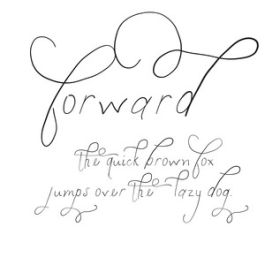 forward
the quick brown fox
jumps over the lazy dog.